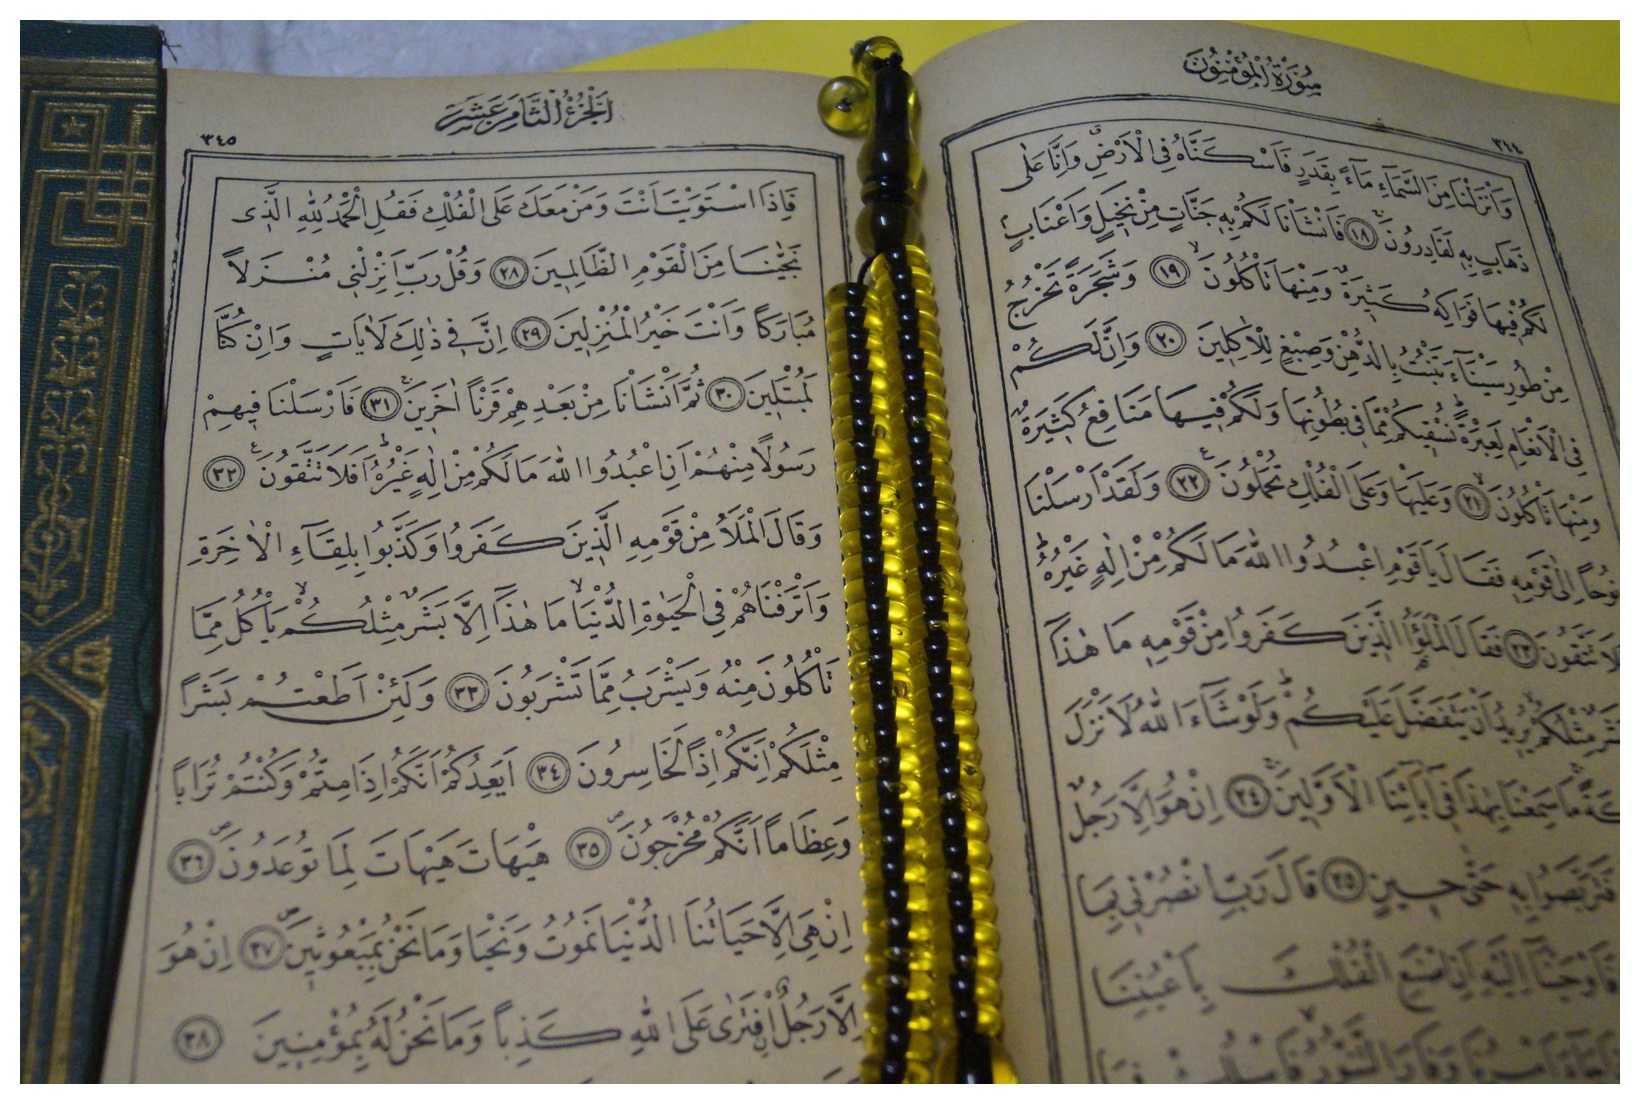 سُورَةُ الْمُؤْمِنُونَ
٣٤٤
وَاَنْزَلْنَا مِنَ السَّمَٓاءِ مَٓاءً بِقَدَرٍ فَاَسْكَنَّاهُ فِي الْاَرْضِ وَاِنَّا عَلٰى
ذَهَابٍ بِه۪ لَقَادِرُونَ ﴿١٨﴾ فَاَنْشَأْنَا لَكُمْ بِه۪ جَنَّاتٍ مِنْ نَخ۪يلٍ وَاَعْنَابٍ
لَكُمْ ف۪يهَا فَوَاكِهُ كَث۪يرَةٌ وَمِنْهَا تَأْكُلُونَ ﴿١٩﴾ وَشَجَرَةً تَخْرُجُ
مِنْ طُورِ سَيْنَٓاءَ تَنْبُتُ بِالدُّهْنِ وَصِبْغٍ لِلْاٰكِل۪ينَ ﴿٢٠﴾ وَاِنَّ لَكُمْ
فِي الْاَنْعَامِ لَعِبْرَةً نُسْق۪يكُمْ مِمَّا ف۪ي بُطُونِهَا وَلَكُمْ ف۪يهَا مَنَافِعُ كَث۪يرَةٌ
وَمِنْهَا تَأْكُلُونَ ﴿٢١﴾ وَعَلَيْهَا وَعَلَى الْفُلْكِ تُحْمَلُونَ ﴿٢٢﴾ وَلَقَدْ اَرْسَلْنَا
نُوحًا اِلٰى قَوْمِه۪ فَقَالَ يَا قَوْمِ اعْبُدُوا اللّٰهَ مَا لَكُمْ مِنْ اِلٰهٍ غَيْرُهُ
تَتَّقُونَ ﴿٢٣﴾ فَقَالَ الْمَلَؤُا الَّذ۪ينَ كَفَرُوا مِنْ قَوْمِه۪ مَا هٰذَٓا
مِثْلُكُمْ يُر۪يدُ اَنْ يَتَفَضَّلَ عَلَيْكُمْ وَلَوْ شَٓاءَ اللّٰهُ لَاَنْزَلَ
مَا سَمِعْنَا بِهٰذَا ف۪ٓي اٰبَٓائِنَا الْاَوَّل۪ينَ ﴿٢٤﴾ اِنْ هُوَ اِلَّا رَجُلٌ
فَتَرَبَّصُوا بِه۪ حَتّٰى ح۪ينٍ ﴿٢٥﴾ قَالَ رَبِّ انْصُرْن۪ي بِمَا
فَاَوْحَيْنَٓا اِلَيْهِ اَنِ اصْنَعِ الْفُلْكَ بِاَعْيُنِنَا
اَمْرُنَا وَفَارَ التَّنُّورُ فَاسْلُكْ ف۪يهَا
اَلْجُزْءُ الثَّامِنَ عَشَرَ
٣٤٥
فَاِذَا اسْتَوَيْتَ اَنْتَ وَمَنْ مَعَكَ عَلَى الْفُلْكِ فَقُلِ الْحَمْدُ لِلّٰهِ الَّذ۪ي
نَجّٰينَا مِنَ الْقَوْمِ الظَّالِم۪ينَ ﴿٢٨﴾ وَقُلْ رَبِّ اَنْزِلْن۪ي مُنْزَلًا
مُبَارَكًا وَاَنْتَ خَيْرُ الْمُنْزِل۪ينَ ﴿٢٩﴾ اِنَّ ف۪ي ذٰلِكَ لَاٰيَاتٍ وَاِنْ كُنَّا
لَمُبْتَل۪ينَ ﴿٣٠﴾ ثُمَّ اَنْشَأْنَا مِنْ بَعْدِهِمْ قَرْنًا اٰخَر۪ينَ ﴿٣١﴾ فَاَرْسَلْنَا ف۪يهِمْ
رَسُولًا مِنْهُمْ اَنِ اعْبُدُوا اللّٰهَ مَا لَكُمْ مِنْ اِلٰهٍ غَيْرُهُ اَفَلَا تَتَّقُونَ ﴿٣٢﴾
وَقَالَ الْمَلَأُ مِنْ قَوْمِهِ الَّذ۪ينَ كَفَرُوا وَكَذَّبُوا بِلِقَٓاءِ الْاٰخِرَةِ
وَاَتْرَفْنَاهُمْ فِي الْحَيٰوةِ الدُّنْيَا مَا هٰذَٓا اِلَّا بَشَرٌ مِثْلُكُمْ يَأْكُلُ مِمَّا
تَأْكُلُونَ مِنْهُ وَيَشْرَبُ مِمَّا تَشْرَبُونَ ﴿٣٣﴾ وَلَئِنْ اَطَعْتُمْ بَشَرًا
مِثْلَكُمْ اِنَّكُمْ اِذًا لَخَاسِرُونَ ﴿٣٤﴾ اَيَعِدُكُمْ اَنَّكُمْ اِذَا مِتُّمْ وَكُنْتُمْ تُرَابًا
وَعِظَامًا اَنَّكُمْ مُخْرَجُونَ ﴿٣٥﴾ هَيْهَاتَ هَيْهَاتَ لِمَا تُوعَدُونَ ﴿٣٦﴾
اِنْ هِيَ اِلَّا حَيَاتُنَا الدُّنْيَا نَمُوتُ وَنَحْيَا وَمَا نَحْنُ بِمَبْعُوث۪ينَ ﴿٣٧﴾ اِنْ هُوَ
اِلَّا رَجُلٌ افْتَرٰى عَلَى اللّٰهِ كَذِبًا وَمَا نَحْنُ لَهُ بِمُؤْمِن۪ينَ ﴿٣٨﴾